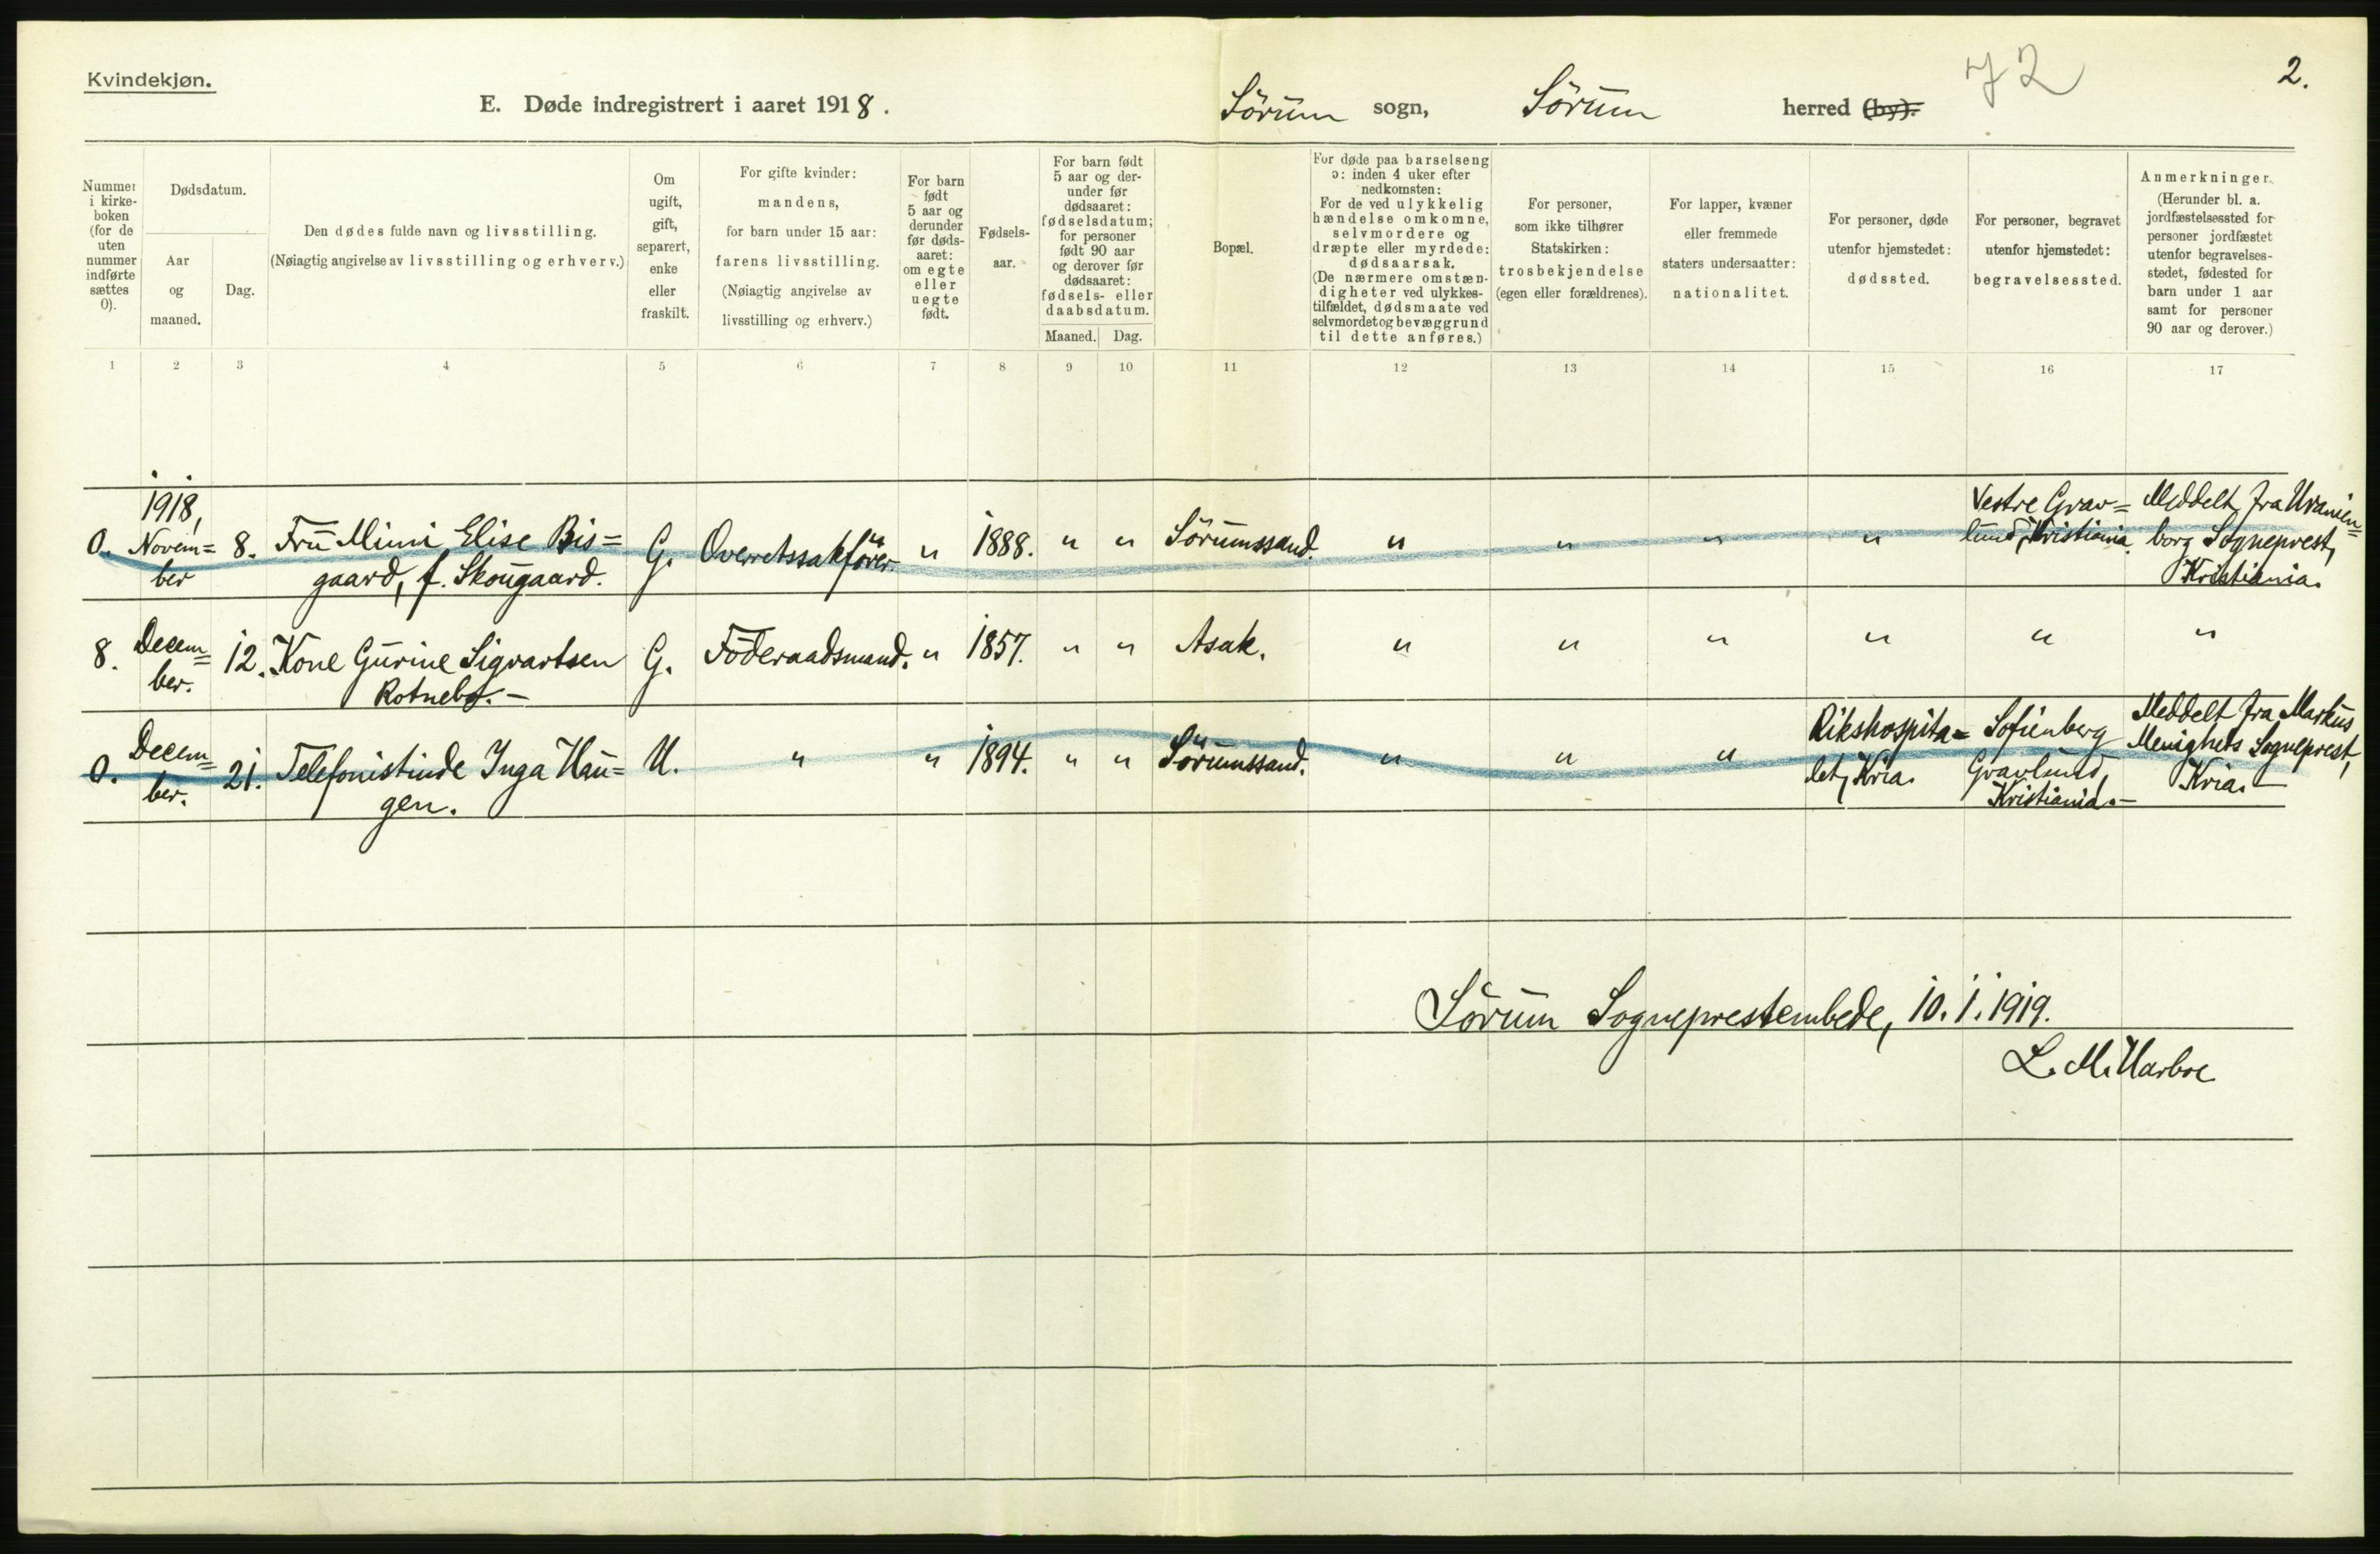 Kvindekjøn.
72
2.
E. Døde indregistrert i aaret 1918.
Sörum sogn, Sörum herred (by).
Nummer
i kirke-
boken
(for de
uten
nummer
indførte
sættes
0).
Dødsdatum.
Aar
og
maaned.
Dag.
Den dødes fulde navn og livsstilling.
(Nøiagtig angivelse av livsstilling og erhverv.)
Om
ugift,
gift,
separert,
enke
eller
fraskilt.
For gifte kvinder:
mandens,
for barn under 15 aar:
farens livsstilling.
(Nøiagtig angivelse av
livsstilling og erhverv.)
For barn
født
5 aar og
derunder
før døds-
aaret:
om egte
eller
uegte
født.
Fødsels-
aar.
For barn født
5 aar og der-
under før
dødsaaret:
fødselsdatum;
for personer
født 90 aar
og derover før
dødsaaret:
fødsels- eller
daabsdatum.
Maaned. Dag.
Bopæl.
For døde paa barselseng
ɔ: inden 4 uker efter
nedkomsten:
For de ved ulykkelig
hændelse omkomne,
selvmordere og
dræpte eller myrdede:
dødsaarsak.
(De nærmere omstæn-
digheter ved ulykkes-
tilfældet, dødsmaate ved
selvmordet og bevæggrund
til dette anføres.)
For personer,
som ikke tilhører
Statskirken:
trosbekjendelse
(egen eller forældrenes).
For lapper, kvæner
eller fremmede
staters undersaatter:
nationalitet.
For personer, døde
utenfor hjemstedet:
dødssted.
For personer, begravet
utenfor hjemstedet:
begravelsessted.
Anmerkninger.
(Herunder bl. a.
jordfæstelsessted for
personer jordfæstet
utenfor begravelses-
stedet, fødested for
barn under 1 aar
samt for personer
90 aar og derover.)
1 2 3 4 5 6 7 8 9 10 11 12 13 14 15 16 17
0.
1918,
Novem=
ber
8.
Fru Mimi Elise Bis=
gaard, f. Skougaard.
G. Overretssakförer. " 1888. " " Sörumssand. " " " "
Vestre Grav=
lund, Kristiania.
Meddelt fra Uranien=
borg Sogneprest,
Kristiania.
8.
Decem=
ber.
12.
Kone Gurine Sigvartsen
Rotnebø.-
G. Föderaadsmand. " 1857. " " Asak. " " " " " "
0.
Decem=
ber.
21.
Telefonistinde Inga Hau=
gen.
U. " " 1894. " " Sörumssand. " " "
Rikshospita=
let, Kria.
Sofienberg
Gravlund,
Kristiania.-
Meddelt fra Markus
Menighets Sogneprest,
Kria.-
Sörum Sogneprestembede, 10.1.1919.
L. M. Harboe